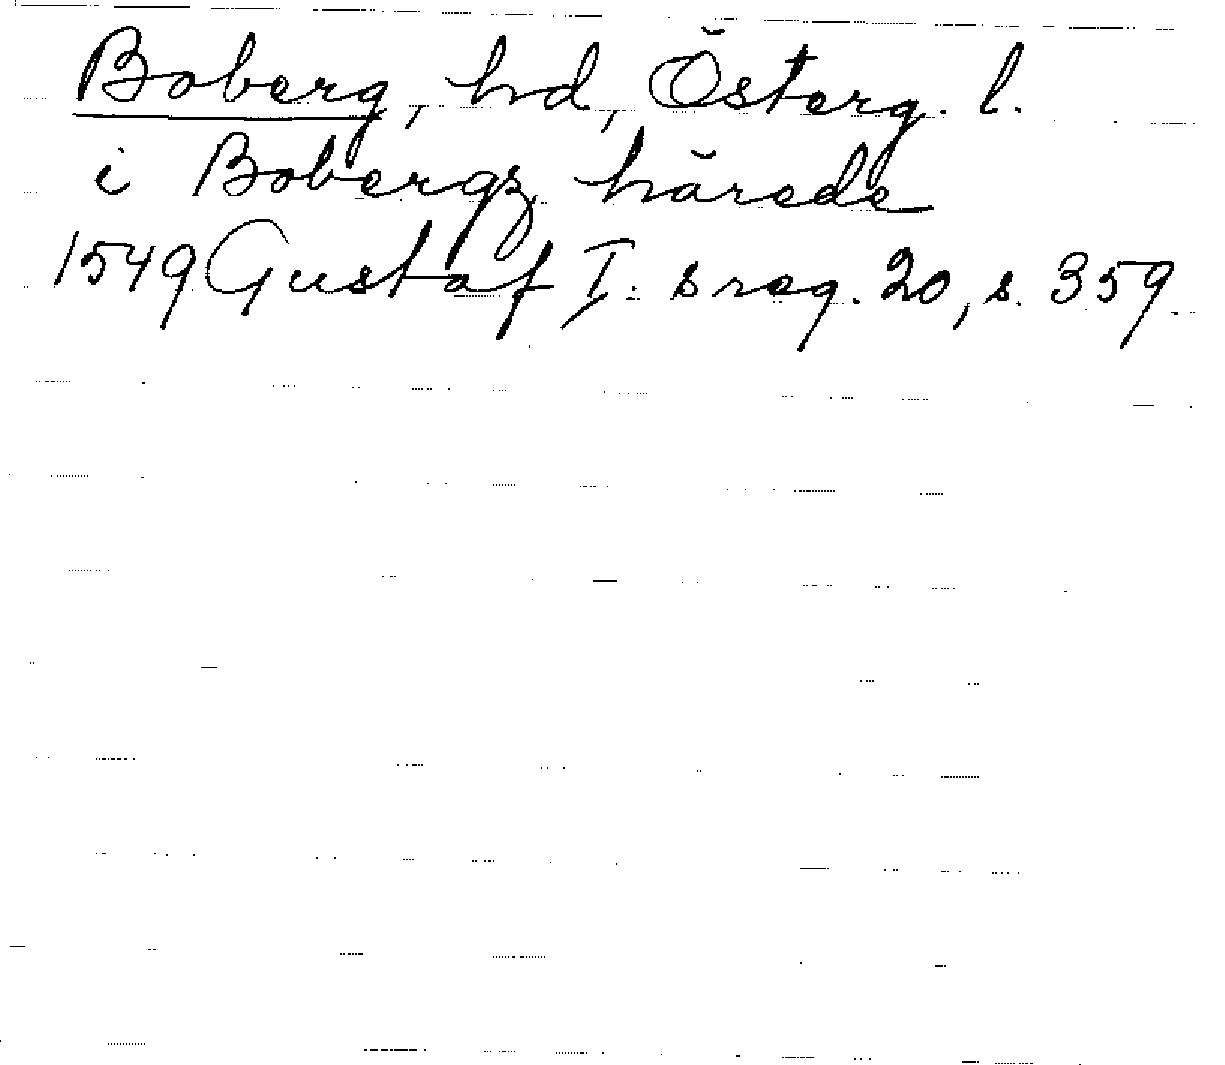 Boberg, hd, Österg. l.
i Bobergz härede
1549 Gustaf I:s reg. 20, s. 359